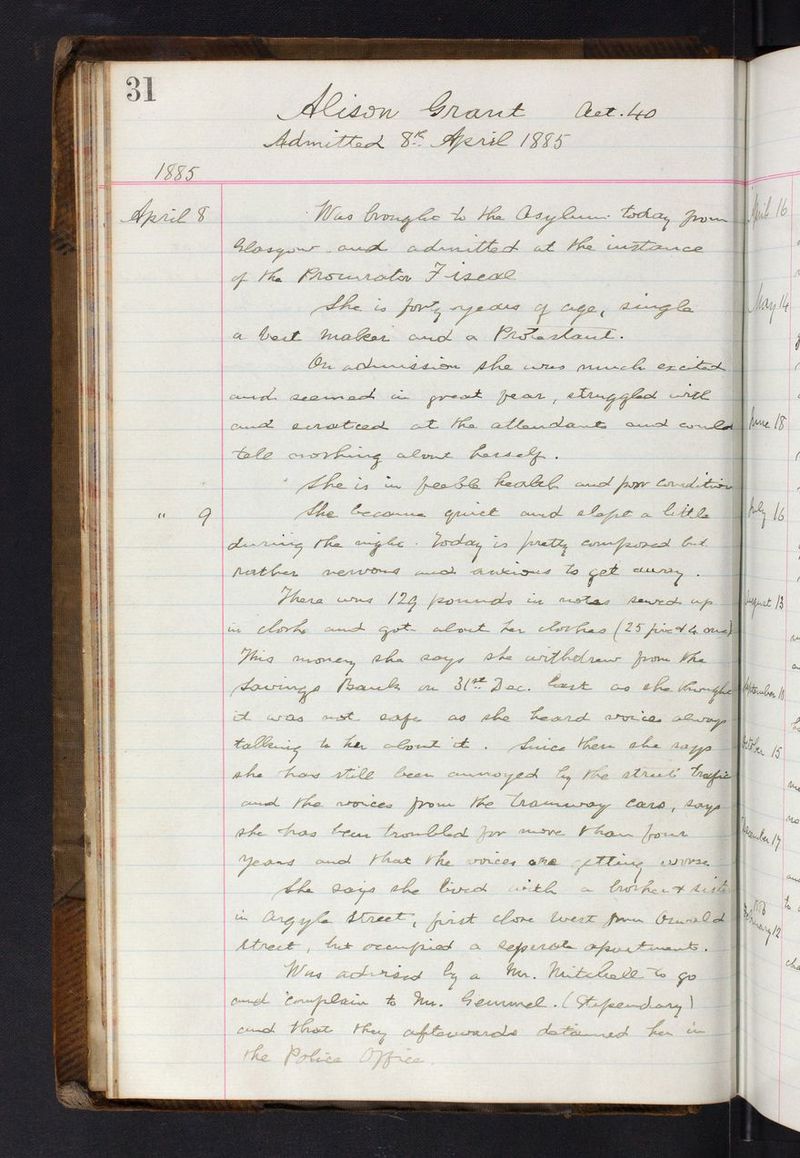 31
Alison Grant Aet. 40
Admitted 8th April 1885
1885
April 8 Was brought to the Asylum today from
Glasgow and admitted at the instance
of the Procurator Fiscal
She is forty years of age, single
a Vest Maker and a Protestant.
On admission she was much excited
and seemed in great fear, struggled with
and scratced at the attendants and could
tell nothing about herself.
She is in feeble health and poor condition
" 9 She became quiet and slept a little
during the night. Today is pretty composed but
rather nervous and anxious to get away.
There was 129 pounds in notes sewed up
in cloth and got about her clothes (25 five & 4 one)
This money she says she withdrew from the
Savings Bank on 31st Dec. last as she thought
it was not safe as she heard voices always
talking to her about it. Since then she says
she has still been annoyed by the street trafic
and the voices from the tramway cars, says
she has been troubled for more than four
years and that the voices are getting worse
She says she lived with a brother & sister
in Argyle Street, first close west from Oswald
Street, but occupied a seperate apartments.
Was advised by a Mr. Mitchell to go
and complain to Mr. Gemmel. (Stipendary)
and that they afterwards detained her in
the Police Office.
April 16
May 14
June 18
July 16
August 13
September 10
October 15
December 17
February 12